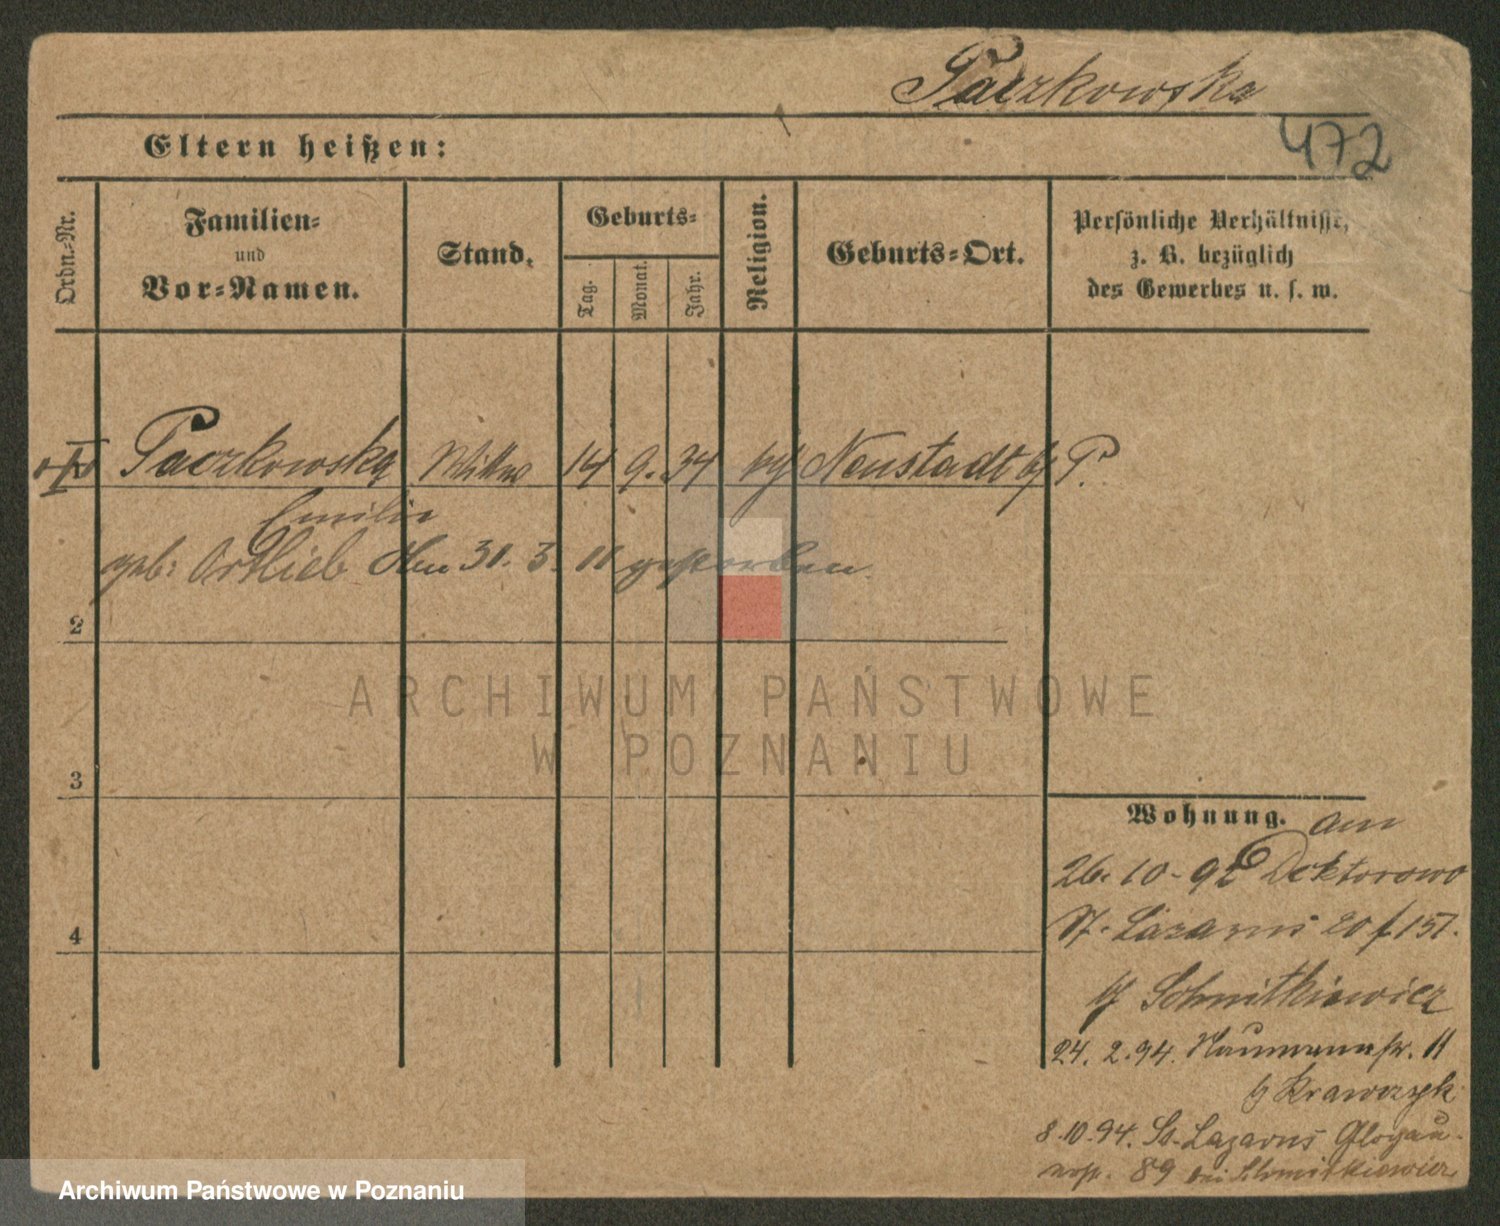 Paczkowska
472
Eltern heißen:
Ordn.-Nr.
Familien-
und
Vor-Namen.
Stand.
Geburts-
Tag.
Monat.
Jahr.
Religion.
Geburts-Ort.
Persönliche Verhältnisse,
z. B. bezüglich
des Gewerbes u. s. w.
Paczkowska Wittwe 14 9. 34 Neustadt b/ P.
Emilie
geb: Ortlieb Am 31. 3. 11 gestorben.
2
3
4
ARCHIWUM PAŃSTWOWE
W POZNANIU
Wohnung. am
26. 10 - 92 Doktorowo
St. Lazarus 20 f 157.
b/ Schmitkiewicz
24. 2. 94. Naumannstr. 11
b/ Krawczyk
8. 10. 94. St. Lazarus Glogau-
erstr. 89 bei Schmitkiewicz
Archiwum Państwowe w Poznaniu